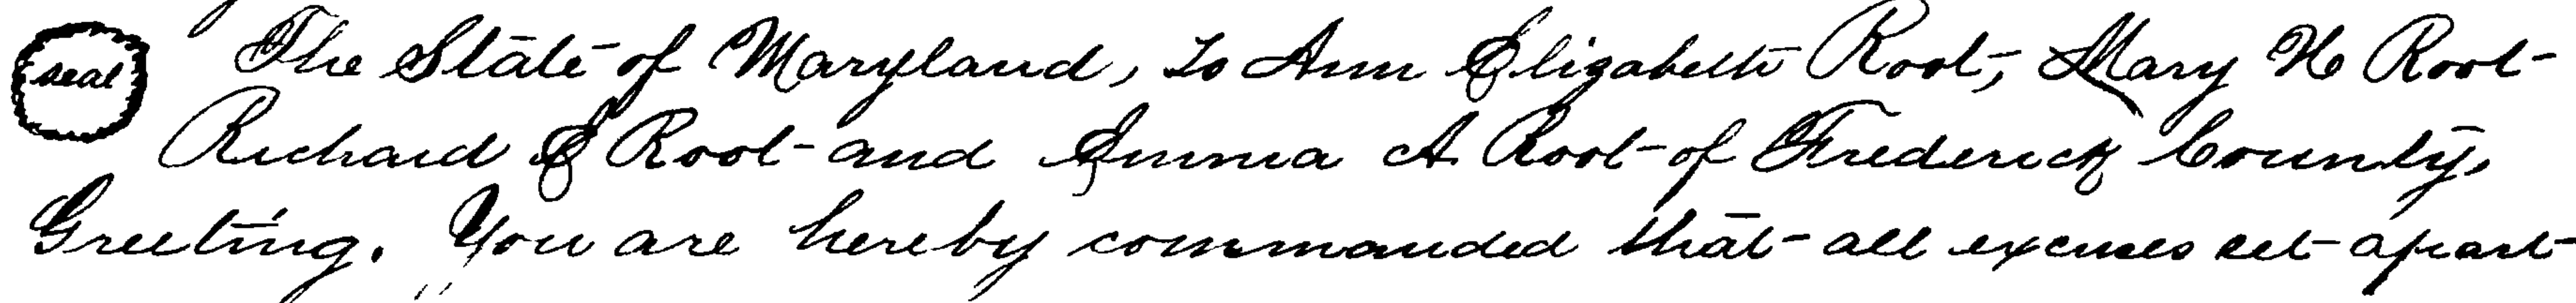 seal The State of Maryland, to Ann Elizabeth Root, Mary H Root
Richard E Root and Emma A Root of Frederick County,
Greeting. You are hereby commanded that all excuses set apart